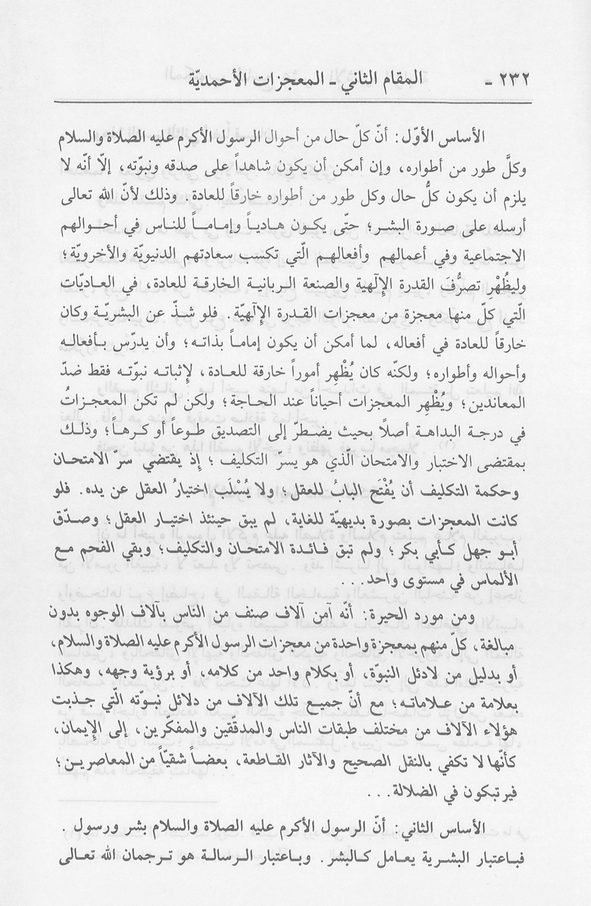 ٢٣٢ - المقام الثاني - المعجزات الأحمديّة
الأساس الأوّل: أنّ كلّ حال من أحوال الرسول الأكرم عليه الصلاة والسلام
وكلَّ طور من أطواره، وإن أمكن أن يكون شاهداً على صدقه ونبوّته، إلّا أنّه لا
يلزم أن يكون كلُّ حال وكل طور من أطواره خارقاً للعادة. وذلك لأنّ الله تعالى
أرسله على صورة البشر؛ حتّى يكون هادياً وإماماً للناس في أحوالهم
الاجتماعية وفي أعمالهم وأفعالهم الّتي تكسب سعادتهم الدنيويّة والأخرويّة؛
وليظُهْرِ تصرُّفَ القدرة الإلٓهية والصنعة الربانية الخارقة للعادة، في العاديّات
الّتي كلّ منها معجزة من معجزات القدرة الإلٓهيّة. فلو شذّ عن البشريّة وكان
خارقاً للعادة في أفعاله، لما أمكن أن يكون إماماً بذاته؛ وأن يدرّس بأفعاله
وأحواله وأطواره؛ ولكنّه كان يُظْهِر أموراً خارقة للعادة، لإثباته نبوّته فقط ضدّ
المعاندين؛ ويُظْهِر المعجزات أحياناً عند الحاجة؛ ولكن لم تكن المعجزاتُ
في درجة البداهة أصلاً بحيث يضطرّ إلى التصديق طوعاً أو كرهاً؛ وذلك
بمقتضى الاختبار والامتحان الّذي هو يسرّ التكليف؛ إذْ يقتضي سرّ الامتحان
وحكمة التكليف أن يُفْتَح البابُ للعقل؛ ولا يُسْلَب اختيارُ العقل عن يده. فلو
كانت المعجزات بصورة بديهيّة للغاية، لم يبق حينئذ اختيار العقل؛ وصدّق
أبو جهل كأبي بكر؛ ولم تبق فائدة الامتحان والتكليف؛ وبقي الفحم مع
الألماس في مستوى واحد...
ومن مورد الحيرة: أنّه آمن آلاف صنف من الناس بآلاف الوجوه بدون
مبالغة، كلّ منهم بمعجزة واحدة من معجزات الرسول الأكرم عليه الصلاة والسلام،
أو بدليل من لادئل النبوّة، أو بكلام واحد من كلامه، أو برؤية وجهه، وهكذا
بعلامة من علاماته؛ مع أنّ جميع تلك الآلاف من دلائل نبوّته الّتي جذبت
هؤلاء الآلاف من مختلف طبقات الناس والمدقّقين والمفكّرين، إلى الإيمان،
كأنّها لا تكفي بالنقل الصحيح والآثار القاطعة، بعضاً شقيّاً من المعاصرين؛
فيرتبكون في الضلالة...
الأساس الثاني: أنّ الرسول الأكرم عليه الصلاة والسلام بشر ورسول.
فباعتبار البشرية يعامل كالبشر. وباعتبار الرسالة هو ترجمان الله تعالى